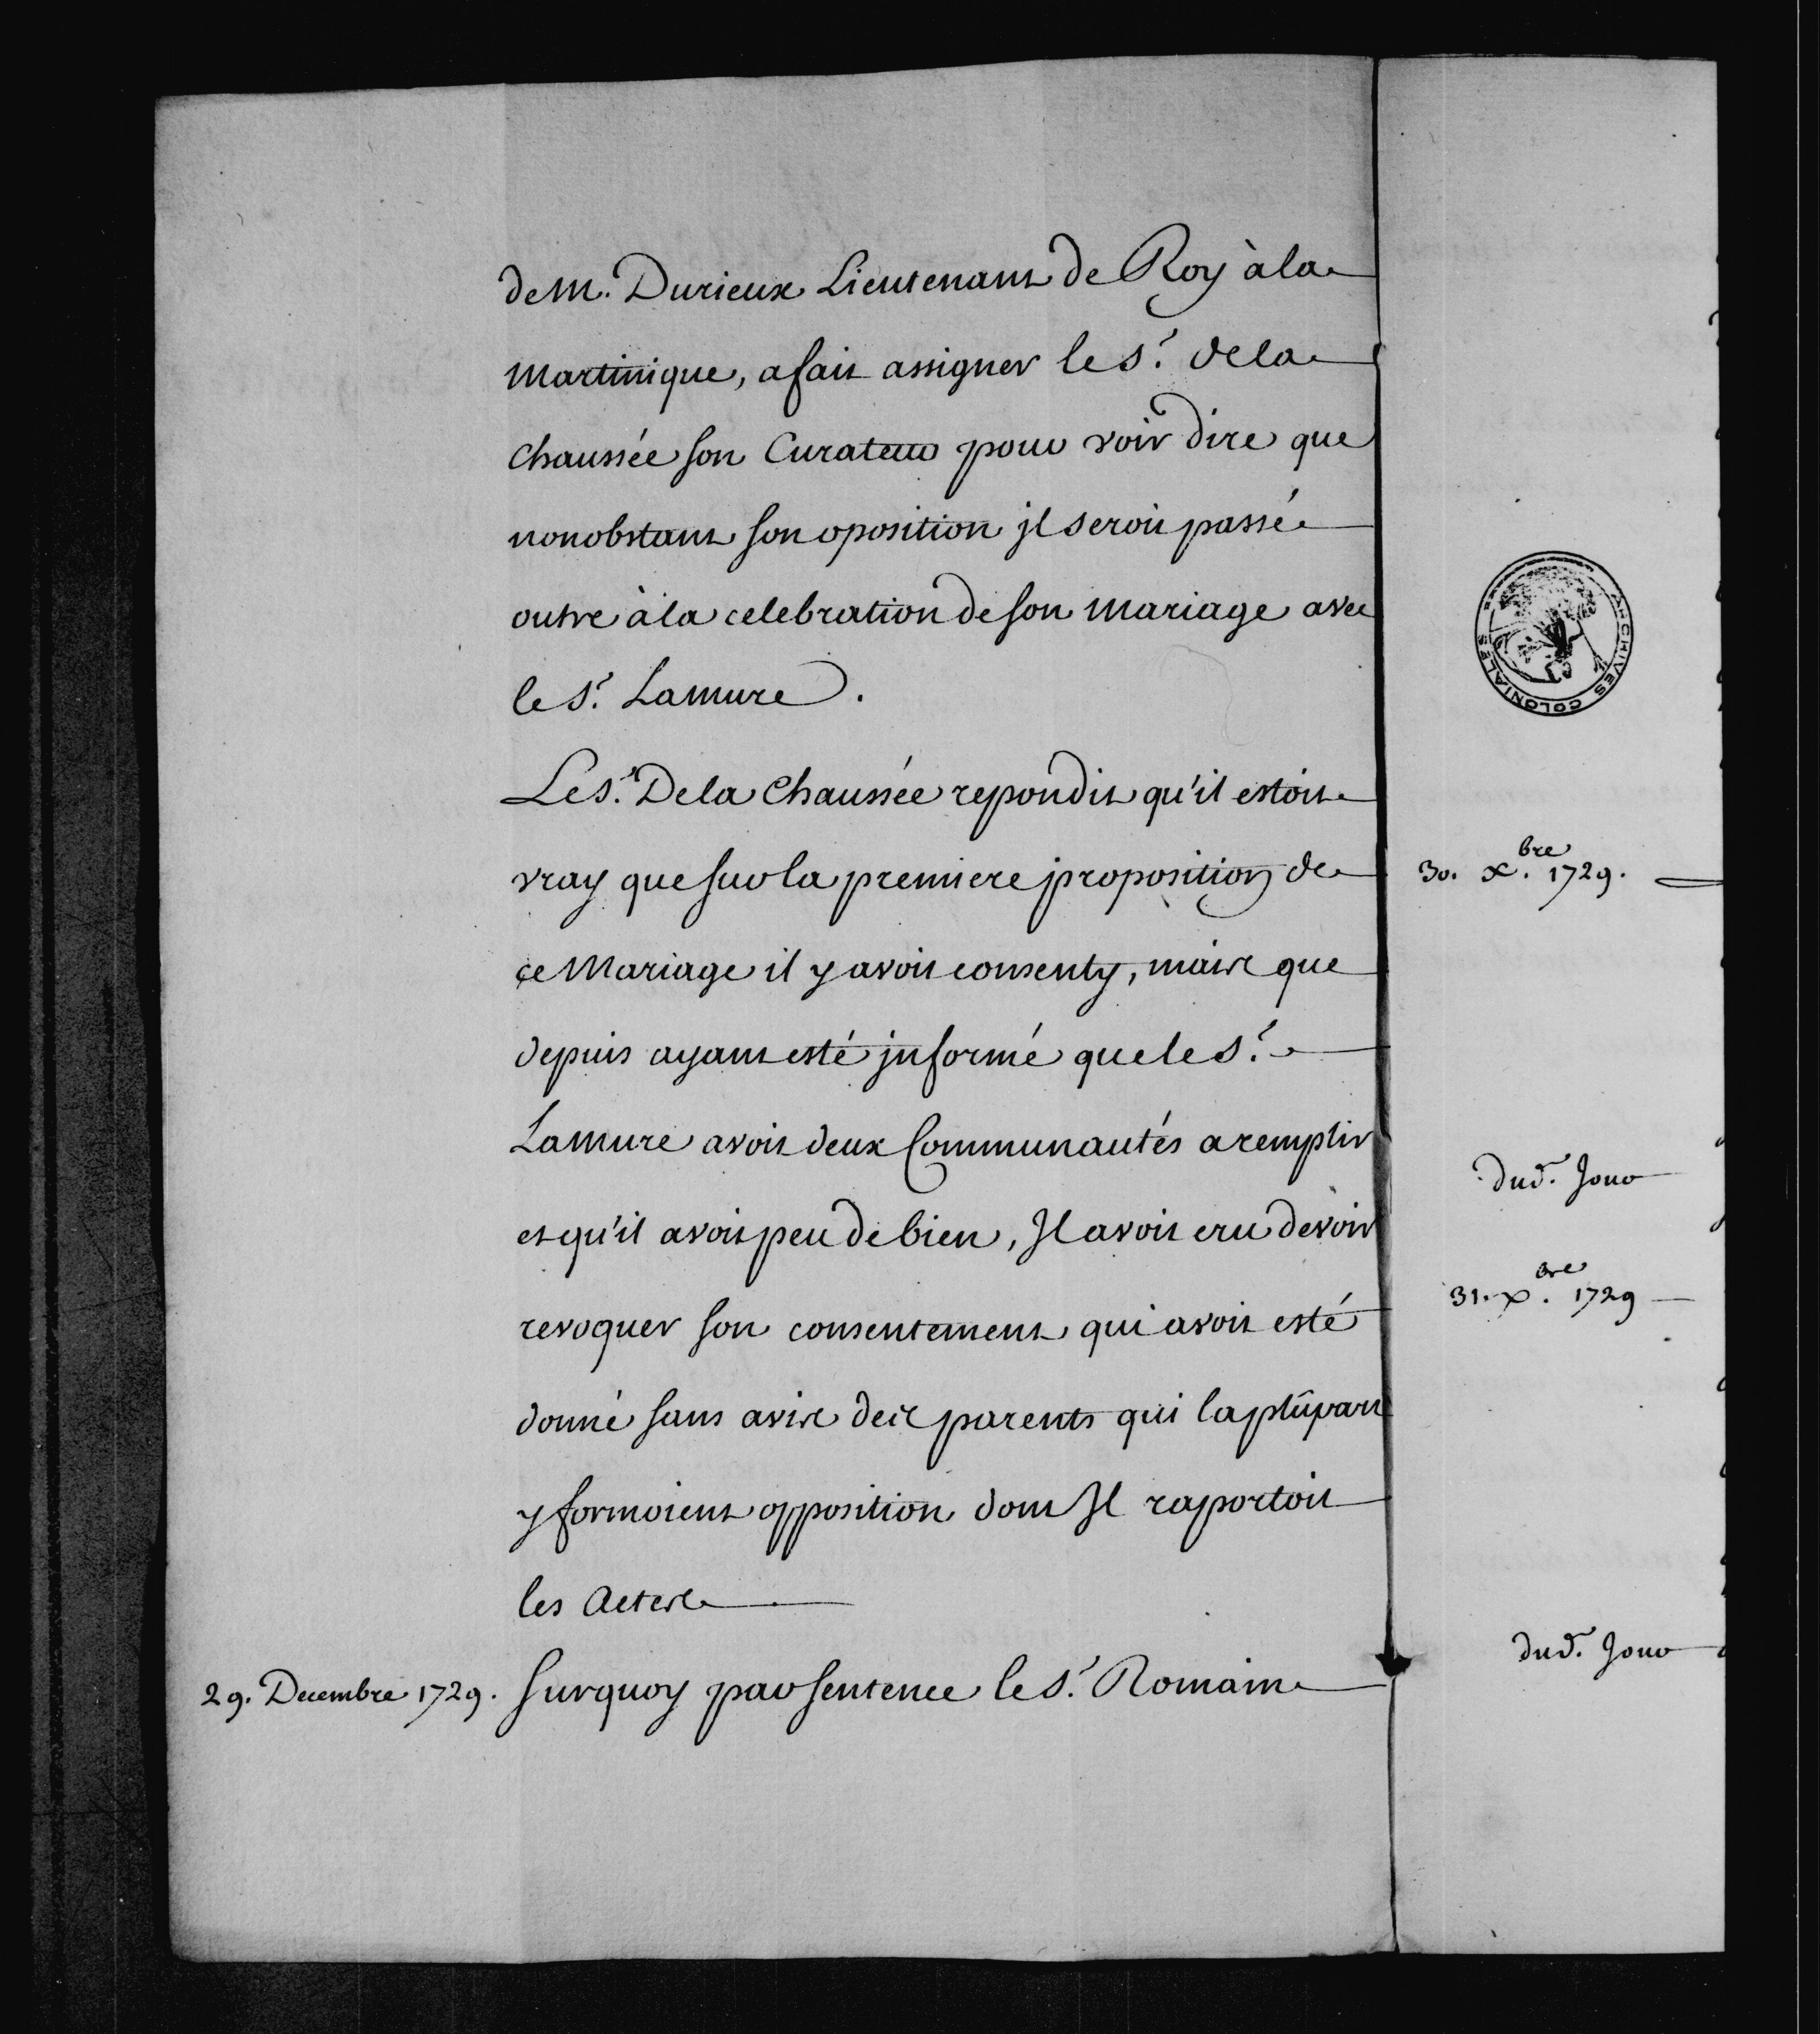 de M. Durieux Lieutenant de Roy à la
Martinique, a fait assigner le S.r de la
Chaussée son Curateur pour voir dire que
nonobstant son oposition jl seroit passé
outre à la celebration de son Mariage avec
le S.r Lamure.
Le S.r De la Chaussée repondit qu'il estoit
vray que sur la premiere proposition de
ce Mariage il y avoit consenty, mais que
depuis ayant esté jnformé que le S.r
Lamure avoit deux Communautés a remplir
et qu'il avoit peu de bien, Jl avoit cru devoir
revoquer son consentement qui avoit esté
donné sans avis des parents qui la plûpart
y formoient opposition dont Jl raportoit
les Actes
29. Decembre 1729. Surquoy par sentence le S.r Romain
ARCHIVES COLONIALES
30. X.bre 1729.
dud.t Jour
31. X.bre 1729
dud.t Jour